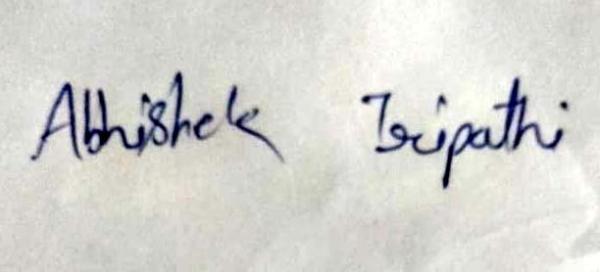 Abhishek Tripathi